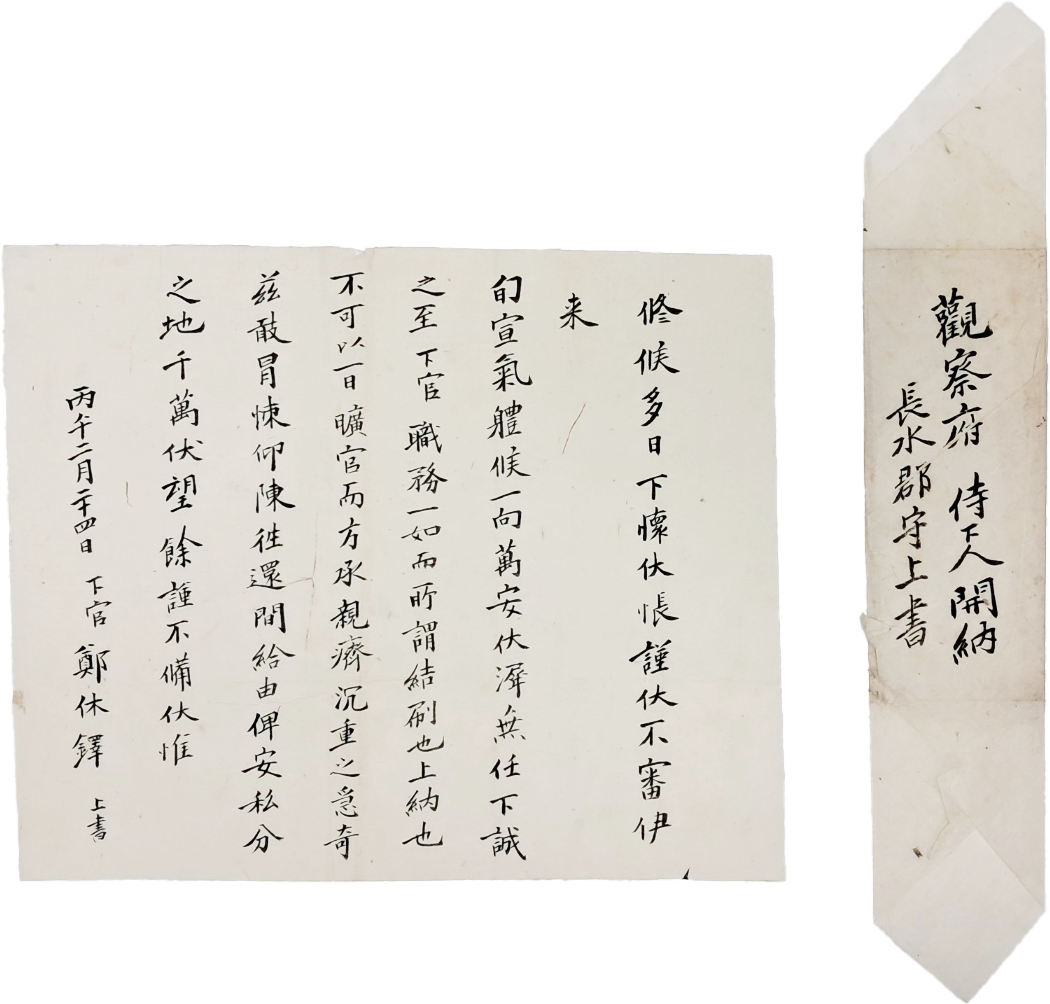 觀察府 侍下人開納
長水郡守上書
修候多日下懷伏悵謹伏不審伊
来
旬宣氣體候一向萬安伏溸無任下誠
之至 下官 職務一如而所謂結刷也上納也
不可以一日曠官而方承親癠沉重之急奇
玆敢冒悚仰陳徃還間給由俾安私分
之地千萬伏望餘謹不備伏惟
丙午二月二十四日 下官 鄭休鐸 上書